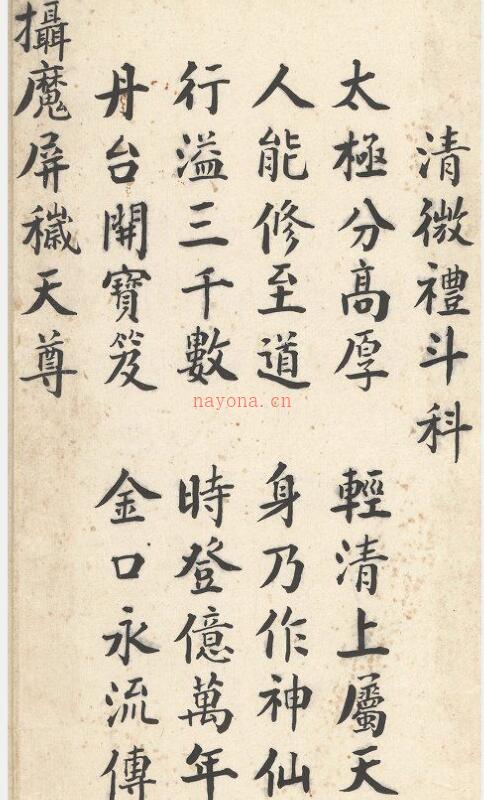 清微禮斗科
太極分高厚 輕清上屬天
人能修至道 身乃作神仙
行溢三千數 時登億萬年
丹台開寶笈 金口永流傳
攝魔屏穢天尊
nayona.cn